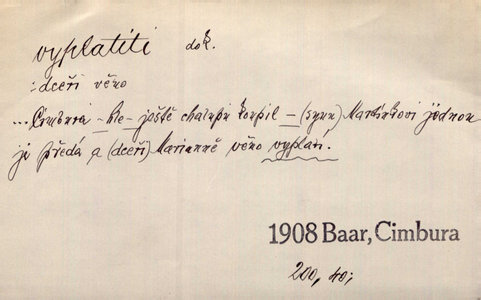 vyplatiti dok.
: dceři věno
... Cimbura – ještě chalupu koupil – (synu) Martínkovi jednou
ji předá a (dceři) Marianně věno vyplatí.
1908 Baar, Cimbura
200, 40;